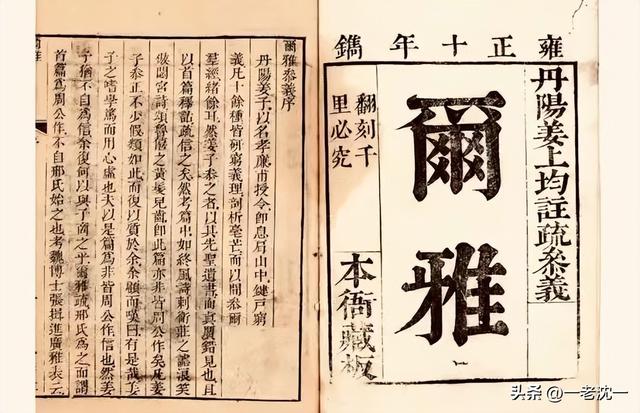 雍正十年鐫
丹陽姜上均註疏叅義
爾雅
翻刻千
里必究
本衙藏板
爾雅叅義序
丹陽姜子以名孝廉甫授令即息肩山中鍵戸窮
義凡十餘種皆硏窮義理剖析毫芒而以間叅爾
羣經緒餘耳然姜子叅之者以其先聖遺書而真贋錯見也且
以首篇釋詁疏信之矣然考篇中如終風詩刺衛莊之謔浪笑
敖閟宮詩頌魯僖之黃髮兒齒即此篇亦非皆周公作矣乃姜
子叅正不少假類如此而復以質於余余顧而嘆曰有是哉姜
子之嗜學篤而用心虛也夫以是篇爲非皆周公作信也然姜
子猶不自爲信余復何以與子商之乎爾雅疏邢氏爲之而謂
首篇爲周公作不自邢氏始之也考魏博士張揖進廣雅表云
头条 @一老沈一